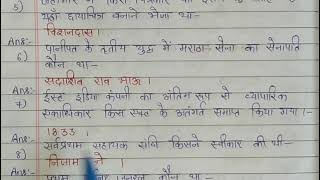 यहाँ छायाचित्र बनाने भेजा था -
Ans:- विशनदास।
6) पानीपत के तृतीय युद्ध में मराठा सेना का सेनापति
कौन था -
Ans:- सदाशिव राव भाऊ।
7) ईस्ट इंडिया कंपनी का अंतिम रूप से व्यापारिक
एकाधिकार किस एक्ट के अंतर्गत समाप्त किया गया।-
Ans:- 1833।
8) सर्वप्रथम सहायक संधि किसने स्वीकार की थी-
Ans:- निजाम ने।